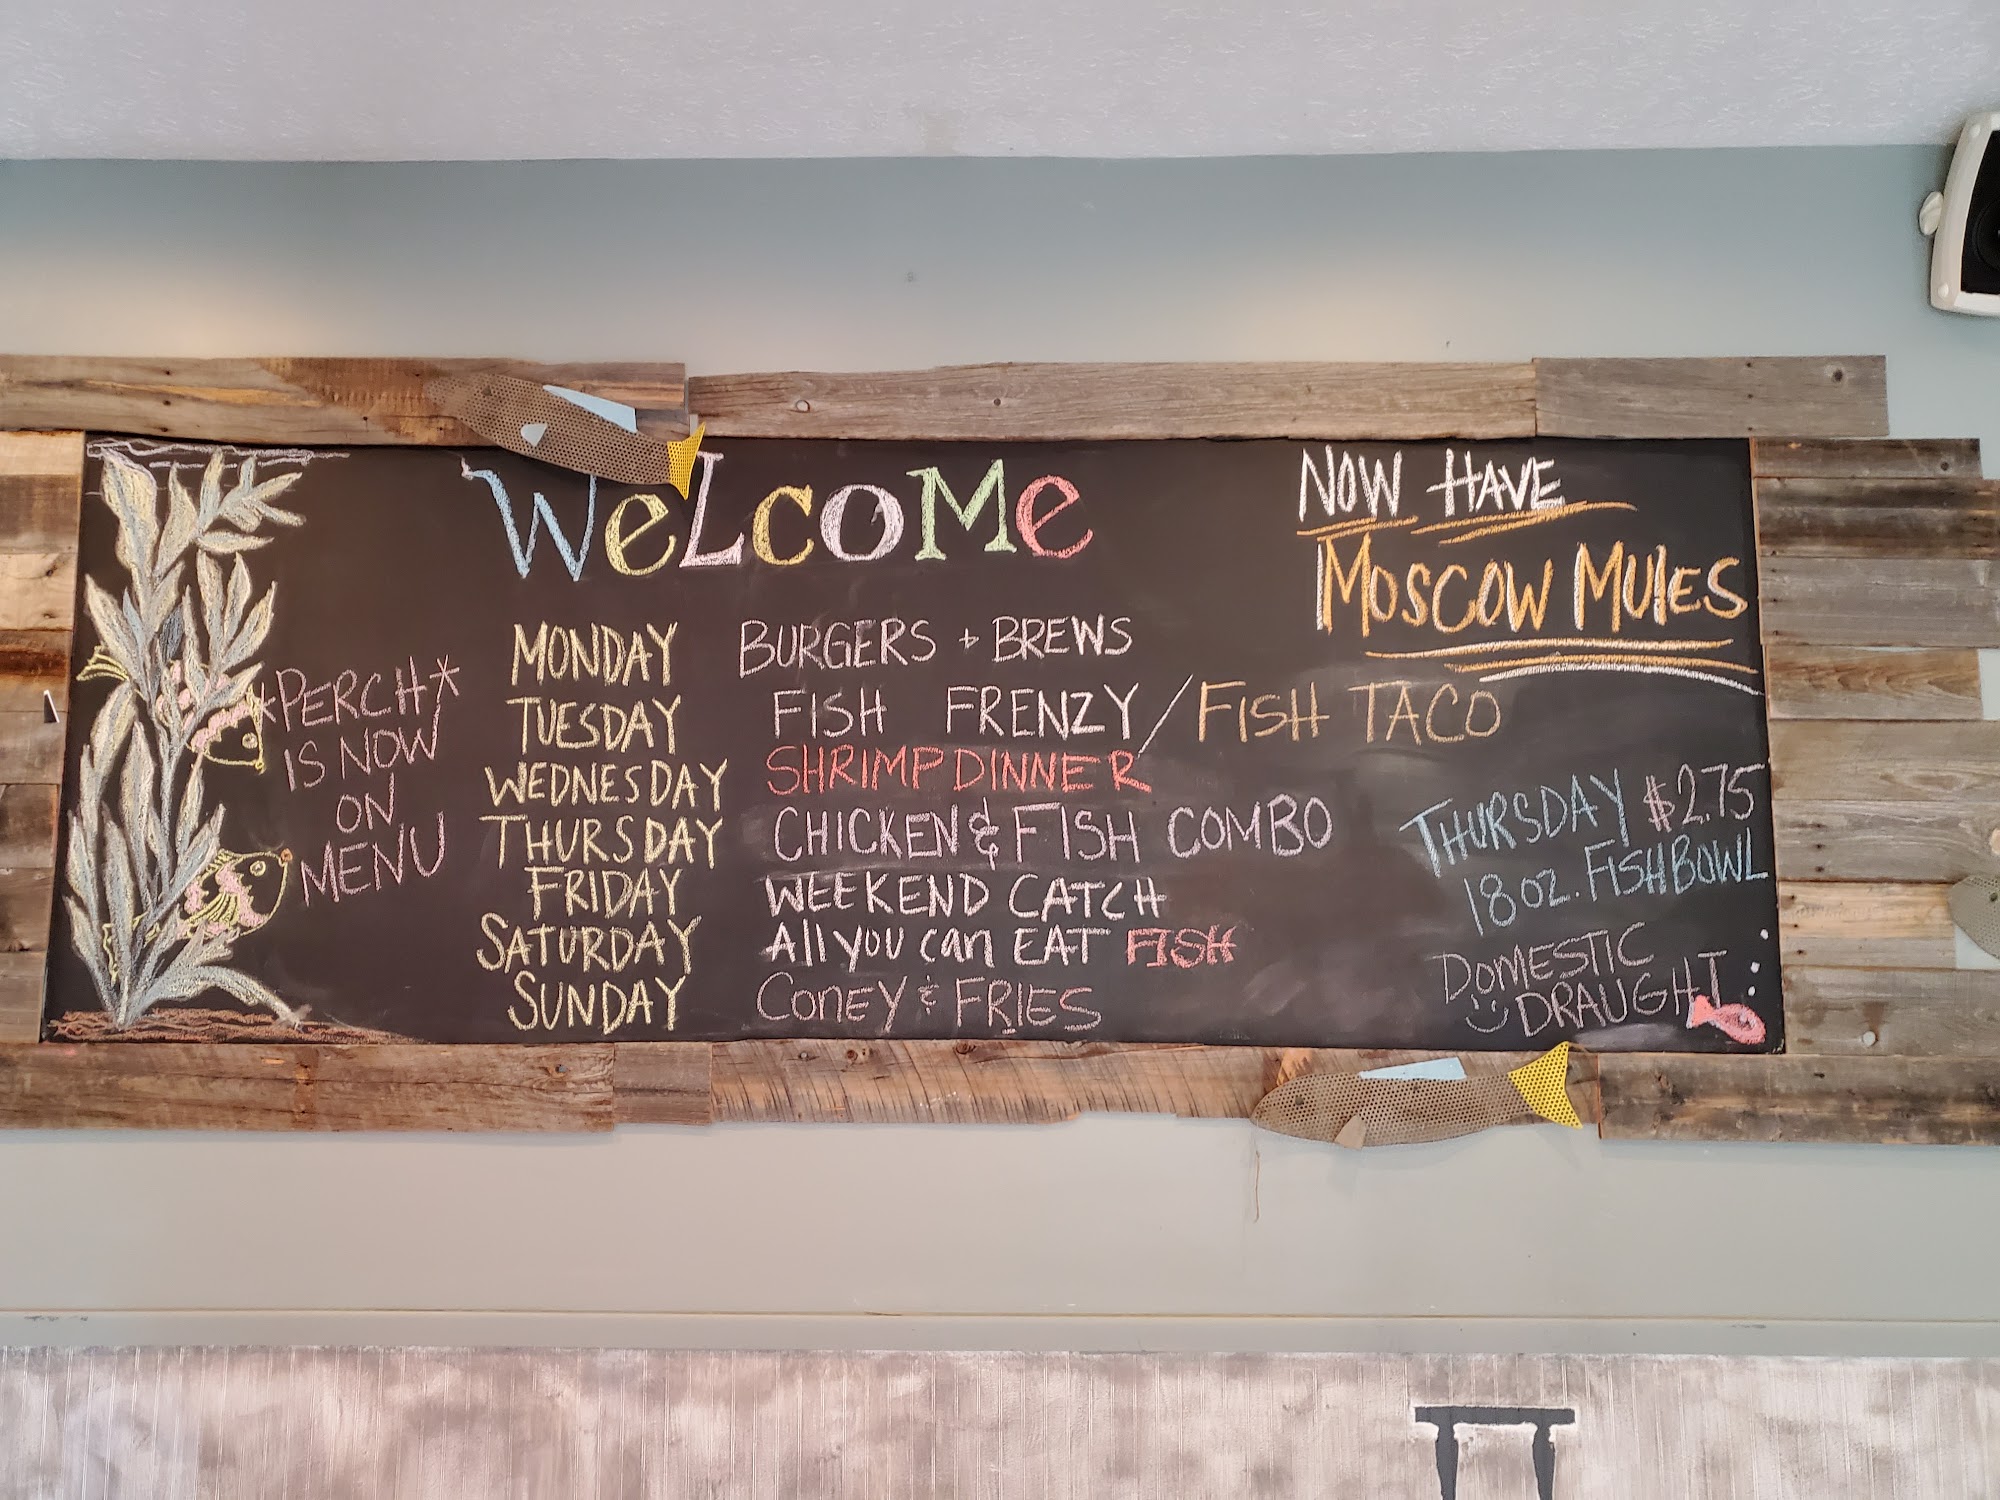 WeLcoMe
NOW HAVE
MOSCOW MULES
*PERCH*
IS NOW
ON
MENU
MONDAY BURGERS + BREWS
TUESDAY FISH FRENZY / FISH TACO
WEDNESDAY SHRIMP DINNER
THURSDAY CHICKEN & FISH COMBO
FRIDAY WEEKEND CATCH
SATURDAY All you can EAT FISH
SUNDAY CONEY & FRIES
THURSDAY $2.75
18 oz. FISHBOWL
DOMESTIC
DRAUGHT